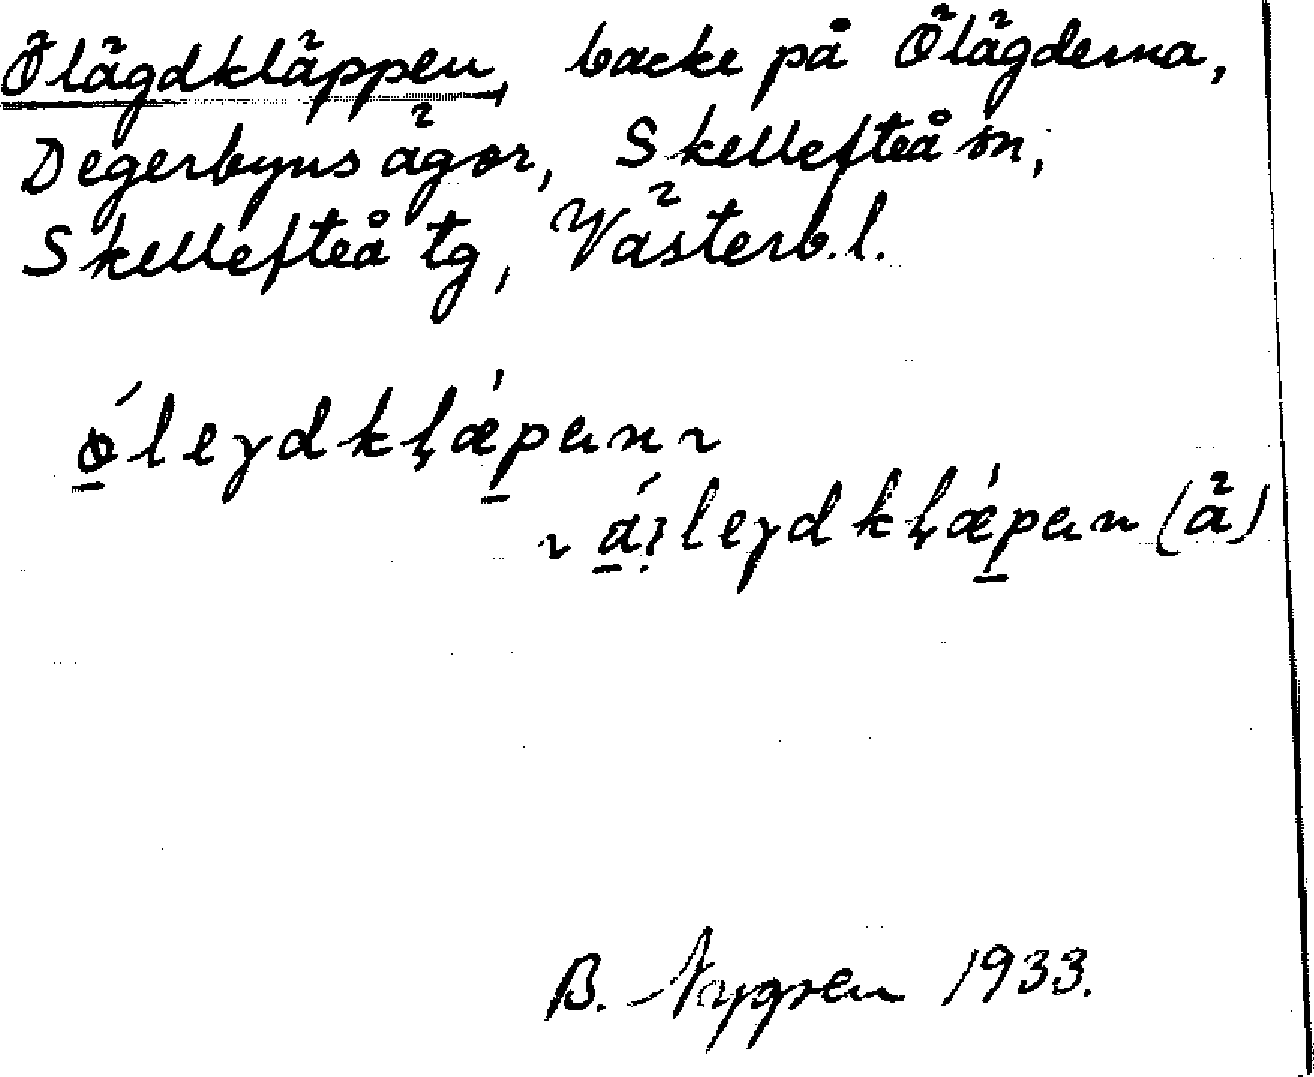 Ölägdkläppen, backe på Ölägderna,
Degerbyns ägor, Skellefteå sn,
Skellefteå tg, Västerb.l.
ǿleɣdkḷǽpɐn ~
~ áꞮleɣdkḷǽpɐn (ä)
B. Nygren 1933.